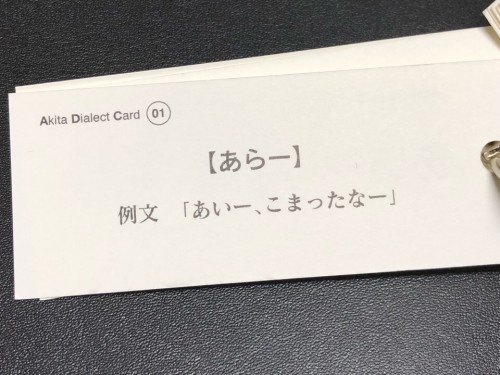 Akita Dialect Card 01
【あらー】
例文 「あいー、こまったなー」